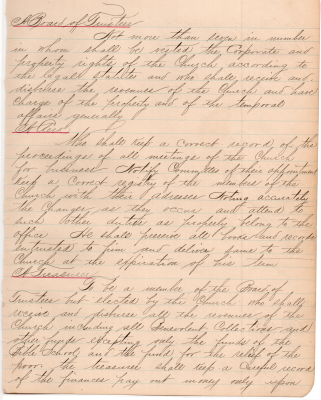 A Board of Trustees
Not more than seven in number
in whom shall be vested the Corporate and
property rights of the Church, according to
the legal statute and who shall receive and
disburse the revenues of the Church and have
charge of the property and of the temporal
affairs generally
A Clerk
Who shall keep a correct record of the
proceedings of all meetings of the Church
for business Notify Committees of their appointment
keep a correct registry of the members of the
Church with their adresses Noting accurately
changes as they occur and attend to
such other duties as properly belong to the
office He shall preserve all books and records
intrusted to him and deliver same to the
Church at the expiration of his term
A Treasurer
To be a member of the Board of
Trustees but elected by the Church who shall
receive and disburse all the revenues of the
Church including all Benevolent Collections and
other funds excepting only the funds of the
Bible School and the fund for the relief of the
poor. the treasurer shall keep a Careful record
of the finances pay out money only upon